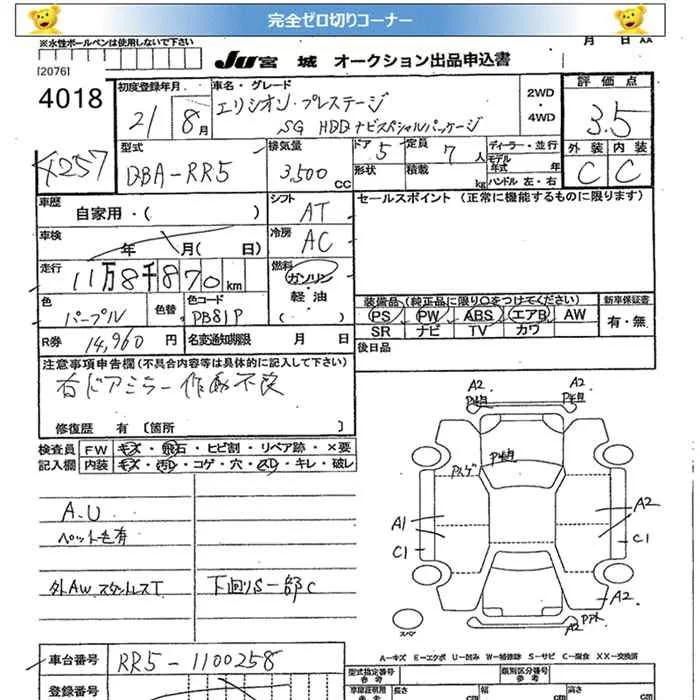 完全ゼロ切りコーナー
※水性ボールペンは使用しないで下さい
月 日
[2076]
JU宮城 オークション出品申込書
4018
初度登録年月
21 8月
車名・グレード
エリシオン・プレステージ
SG HDDナビスペシャルパッケージ
2WD・4WD
評価点
3.5
4257
型式
DBA-RR5
排気量
3,500cc
ドア 5
定員 7人
形状
積載 kg
ディーラー・並行
モデル年式 年
ハンドル 左・右
外装 内装
C C
車歴
自家用・( )
シフト
AT
セールスポイント(正常に機能するものに限ります)
車検
年 月(日)
冷房
AC
走行
11万8千870km
燃料
ガソリン・軽油
( )
色
パープル
色替
色コード
PB81P
装備品(純正品に限り○をつけてください)
新車保証書
PS PW ABS エアB AW
SR ナビ TV カワ
有・無
R券 14,960円
名変通知期限 月 日
後日品
注意事項申告欄(不具合内容等は具体的に記入して下さい)
右ドアミラー作動不良
修復歴 有〔箇所 〕
検査員記入欄
FW キズ・飛石・ヒビ割・リペア跡・×要
内装 キズ・汚レ・コゲ・穴・スレ・キレ・破レ
A.U
ペット毛有
外AW スタットレスT
下回りS一部C
A2 A2
A1
C1
A2
C1
A2
A2
スペア
車台番号 RR5-1100258
登録番号
A-キズ E-エクボ U-凹み W-補修跡 S-サビ C-腐食 XX-交換済
型式指定番号
参考
類別区分番号
参考
長さ cm
幅 cm
高さ cm